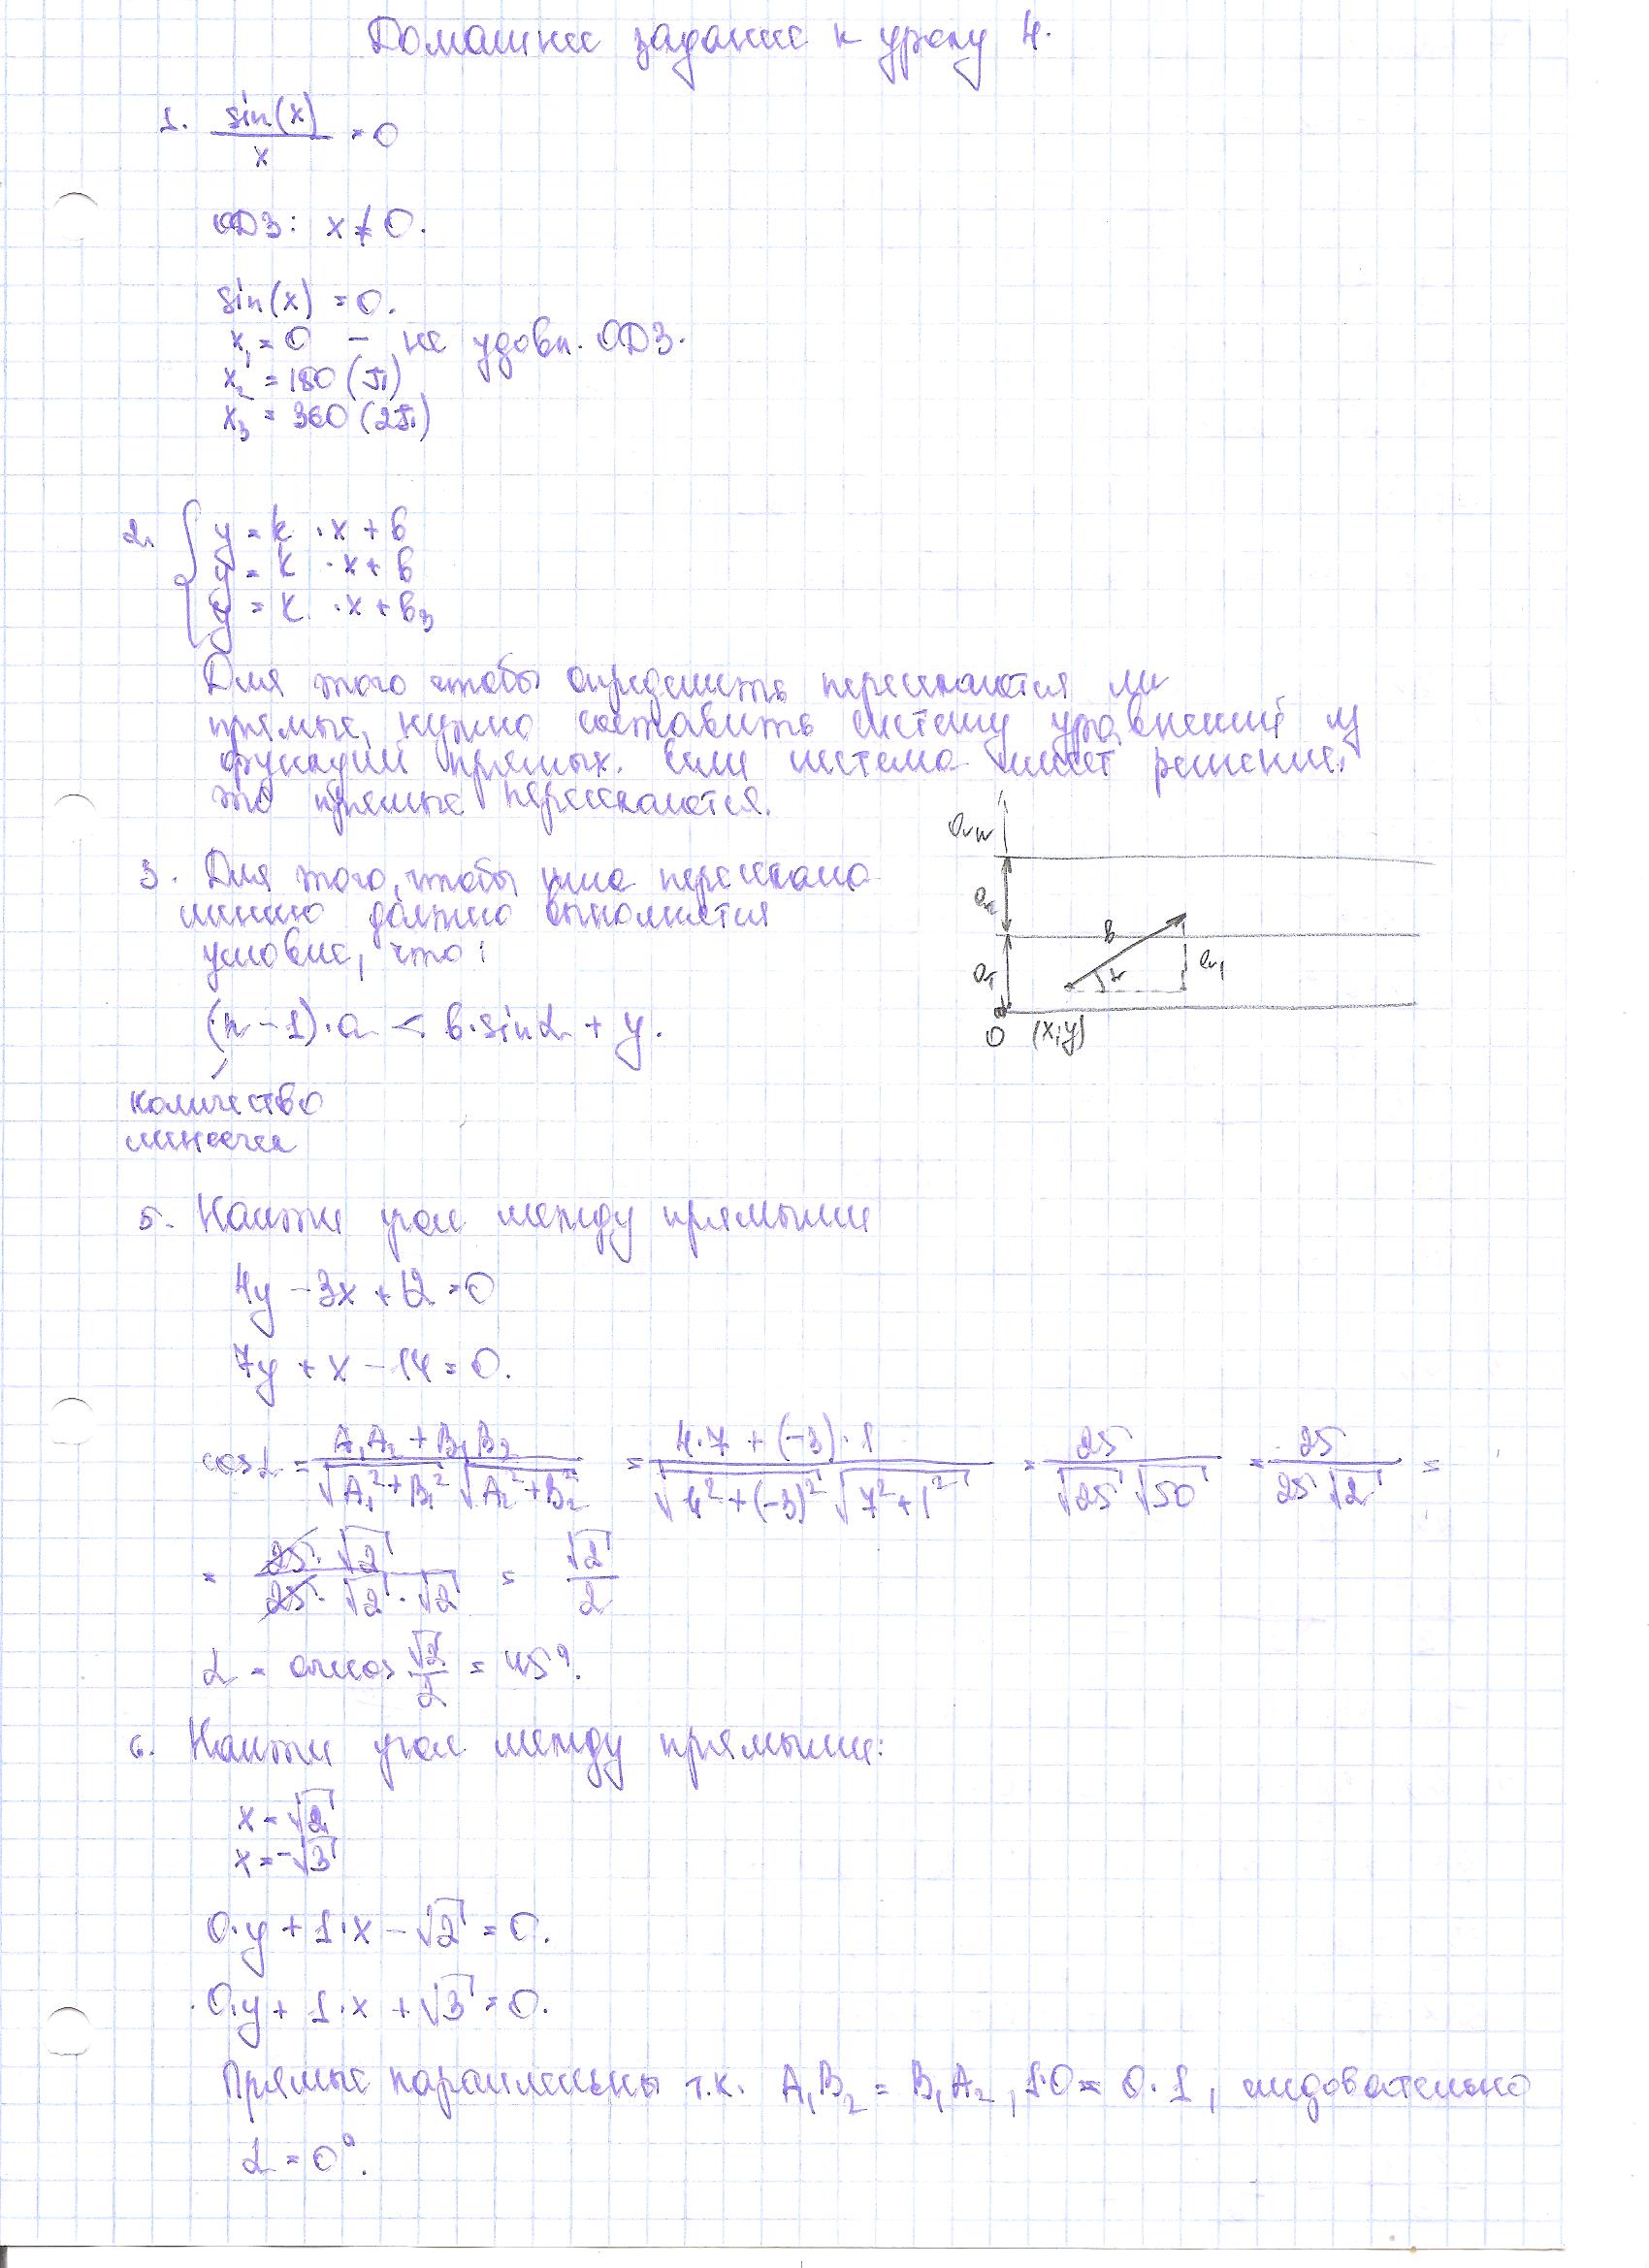 Домашнее задание к уроку 4.
1. sin(x)/x = 0
ОДЗ: x ≠ 0.
sin(x) = 0.
x₁ = 0 – не удовл. ОДЗ.
x₂ = 180 (π)
x₃ = 360 (2π)
2. { y = k · x + b
y = k · x + b
y = k · x + b₃
Для того чтобы определить пересекаются ли
прямые, нужно составить систему уравнений из
функций прямых. Если система имеет решение,
то прямые пересекаются.
3. Для того, чтобы игла пересекала
линию должно выполняется
условие, что:
(n – 1) · a < b · sin α + y.
количество
линеечек
aₙ
a₂
a₁
b
α
a₁
0 (x; y)
5. Найти угол между прямыми
4y – 3x + 12 = 0
7y + x – 14 = 0.
cos α = (A₁A₂ + B₁B₂)/(√(A₁² + B₁²) √(A₂² + B₂²)) = (4·7 + (–3)·1)/(√(4² + (–3)²) √(7² + 1²)) = 25/(√25 √50) = 25/(25 √2) =
= (25 · √2)/(25 · √2 · √2) = √2/2
α = arccos √2/2 = 45°.
6. Найти угол между прямыми:
x = √2
x = –√3
0·y + 1·x – √2 = 0.
0·y + 1·x + √3 = 0.
Прямые параллельны т.к. A₁B₂ = B₁A₂, 1·0 = 0·1, следовательно
α = 0°.